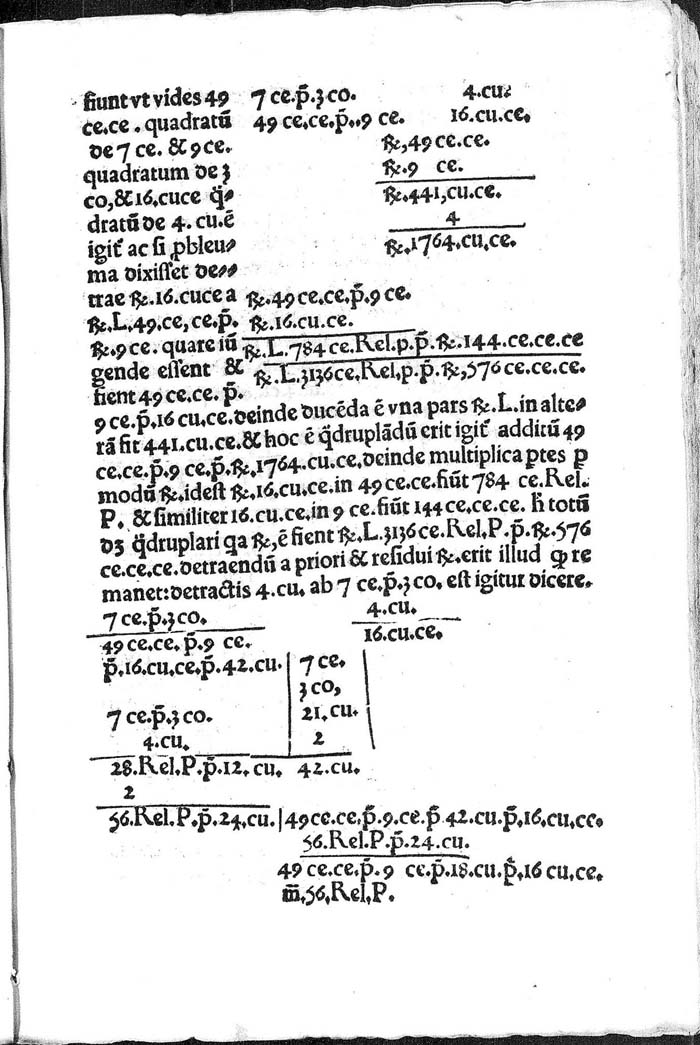 fiunt vt vides 49 7 ce.p̃.3 co. 4.cu.
ce.ce. quadratũ 49 ce.ce.p̃..9 ce. 16.cu.ce.
de 7 ce. & 9ce. ℞.49 ce.ce.
quadratum de 3 ℞.9 ce.
co,&16.cuce q̃- ℞.441,cu.ce.
dratũ de 4. cu.ẽ 4
igit̃ ac si ꝓbleu- ℞.1764.cu,ce.
ma dixisset de--
trae ℞.16.cuce a ℞.49 ce.ce.p̃.9 ce.
℞.L.49.ce,ce.p̃. ℞.16.cu.ce.
℞.9 ce. quare iũ ℞.L.784 ce.Rel.p.p̃.℞.144.ce.ce.ce
gende essent & ℞.L.3136ce.Rel,p.p̃.℞,576 ce.ce.ce.
fient 49 ce.ce. p̃.
9 ce.p̃.16 cu,ce.deinde ducẽda ẽ vna pars ℞.L.in alte-
rã fit 441.cu.ce.& hoc ẽ q̃druplãdũ erit igit̃ additũ 49
ce.ce.p̃.9 ce.p̃.℞.1764.cu.ce.deinde multiplica ꝑtes ꝑ
modũ ℞.idest ℞.16.cu.ce.in 49 ce.ce.fiũt 784 ce.Rel.
P. & similiter 16.cu.ce,in 9 ce.fiũt 144 ce.ce.ce. h̃ totũ
dʒ q̃druplari qa ℞,ẽ fient ℞.L.3136 ce.Rel.P.p̃.℞.576
ce.ce.ce.detraendũ a priori & residui ℞.erit illud ꝙ re
manet:detractis 4.cu. ab 7 ce.p̃.3 co. est igitur dicere.
7 ce.p̃.3 co. 4.cu.
49 ce.ce. p̃.9 ce. 16.cu.ce.
p̃.16.cu,ce.p̃.42.cu. 7 ce.
3 co,
7 ce.p̃.3 co. 21.cu.
4.cu. 2
28.Rel.P.p̃.12.cu. 42.cu.
2
56.Rel.P.p̃.24,cu. 49 ce.ce,p̃.9.ce.p̃ 42.cu.p̃,16,cu,ce.
56.Rel.P.p̃.24.cu.
49 ce.ce.p̃.9 ce.p̃.18.cu.p̃,16 cu,ce.
m̃.56,Rel,P.